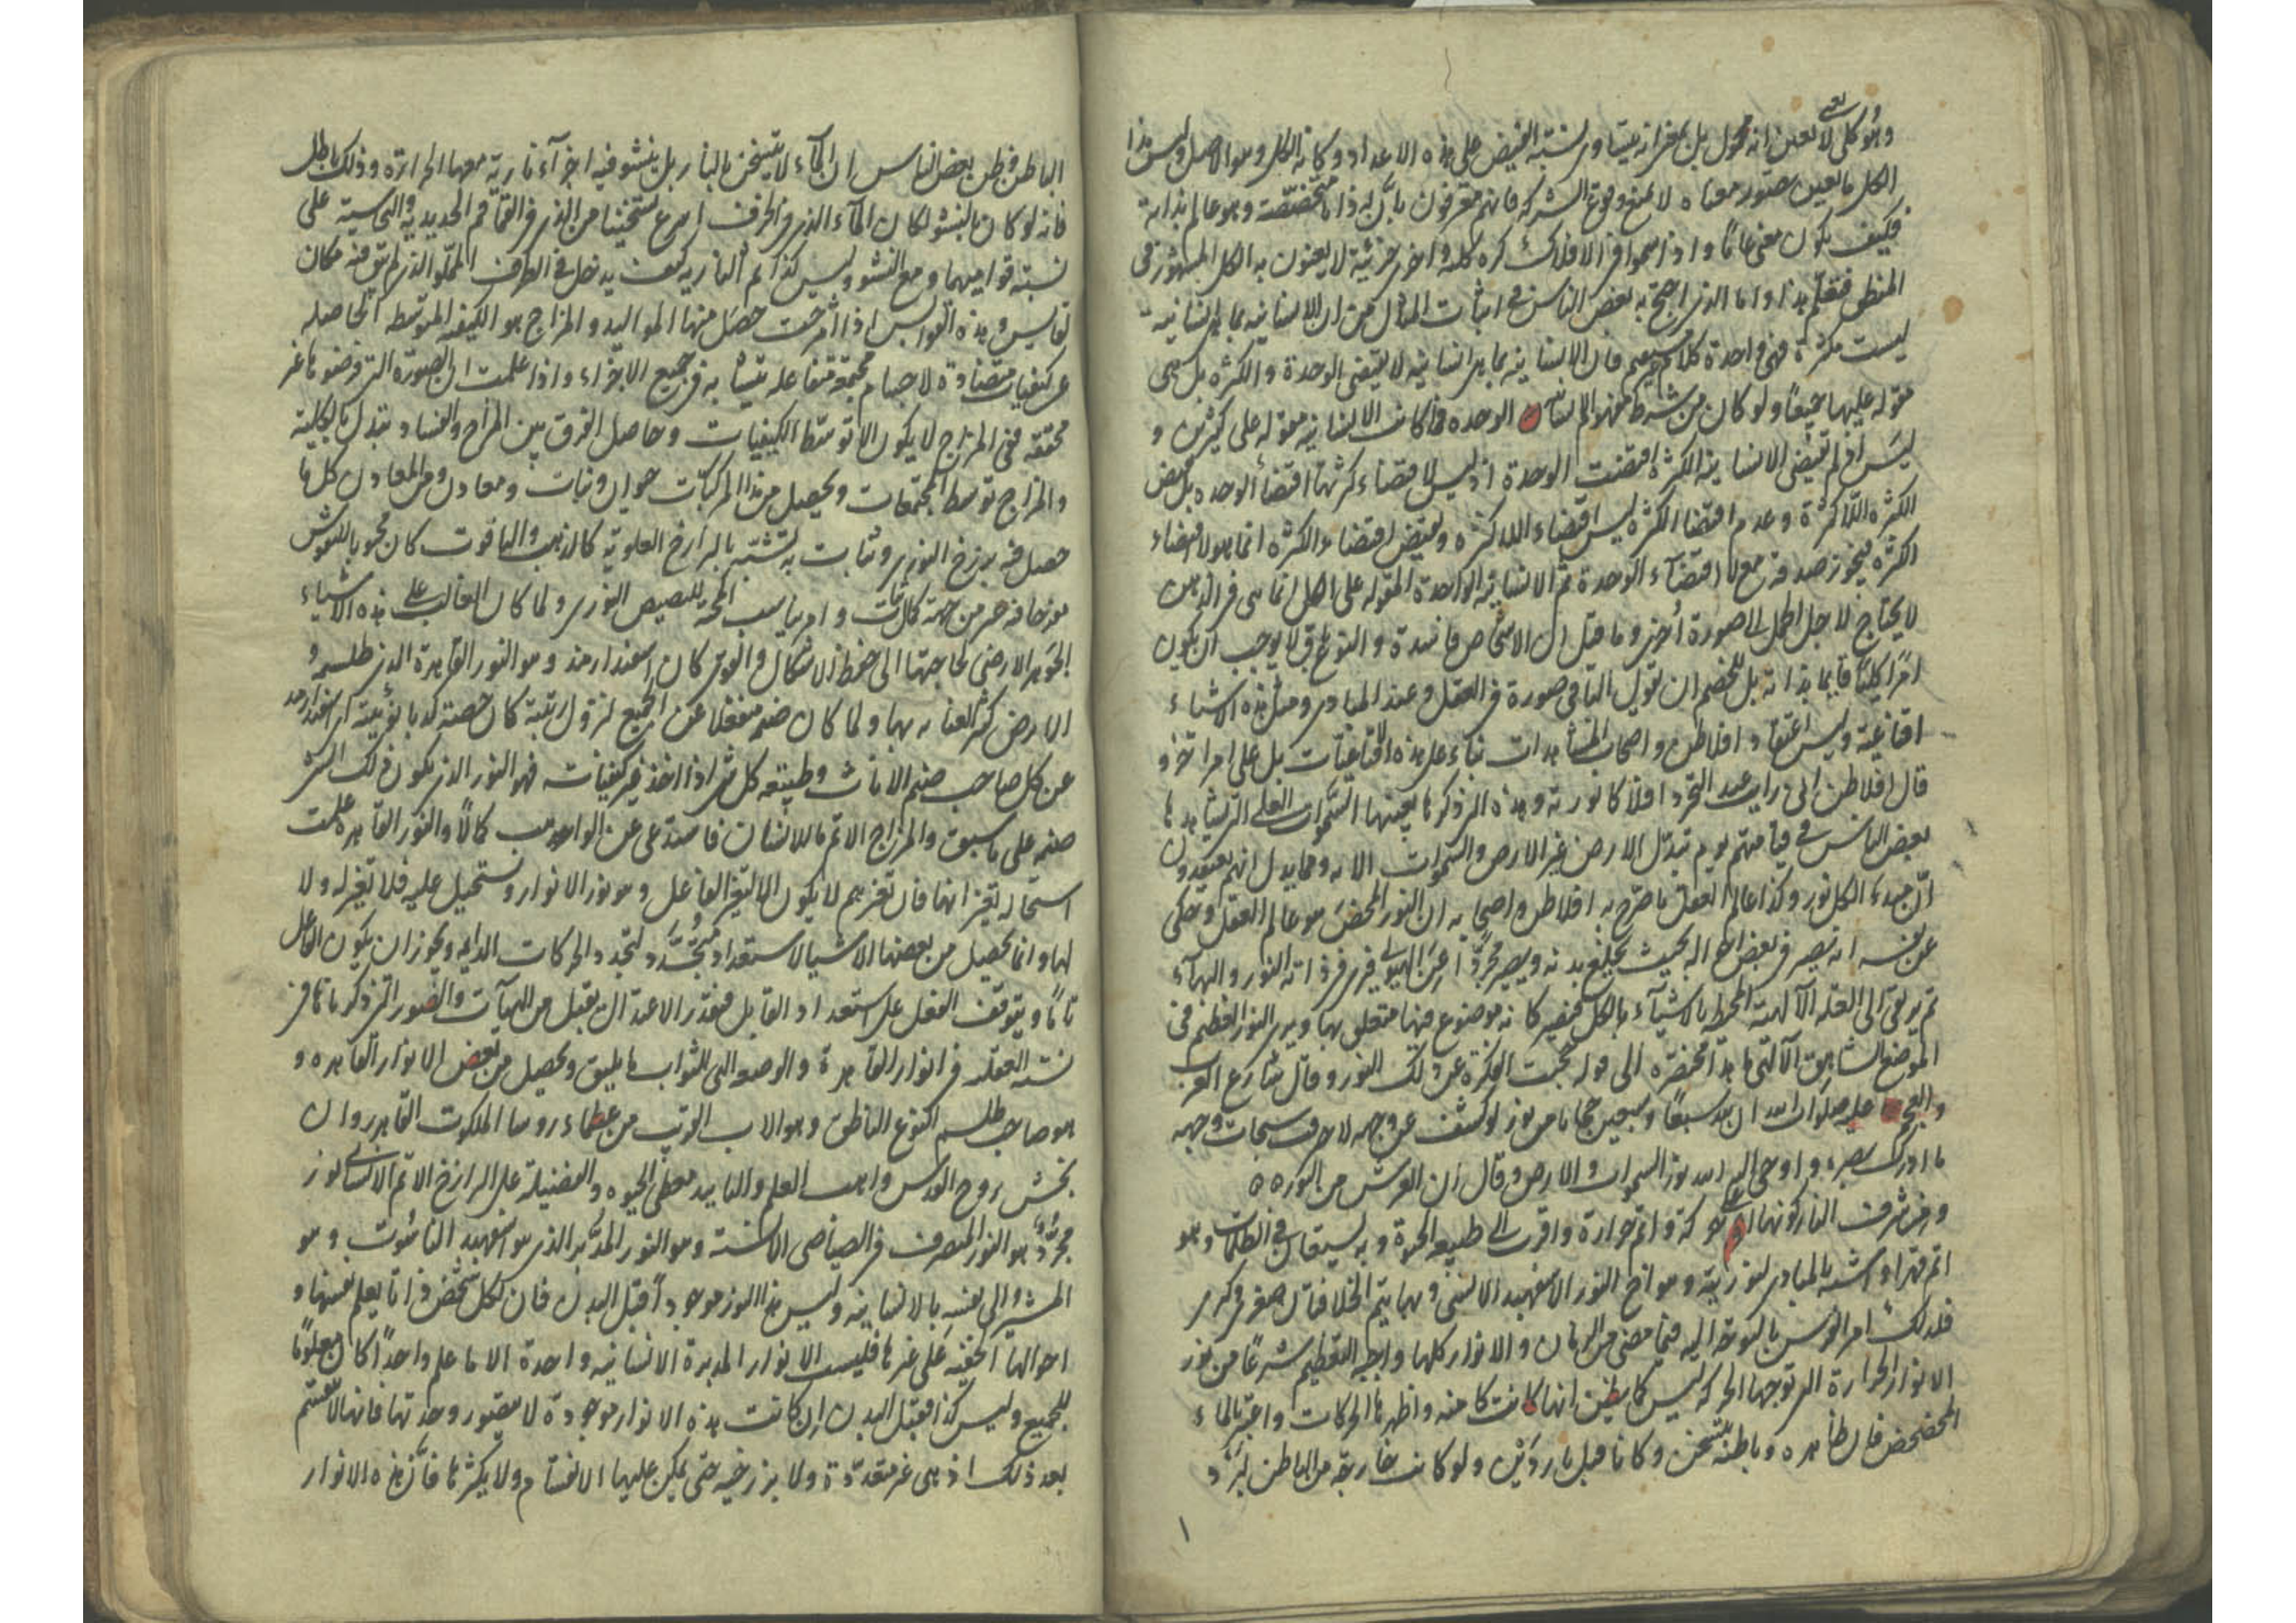 وهو كلي لا يعنون انه محمول بل بمعنى انه متساوى نسبة الفيض على هذه الاعداد وكانه الكل وهو الاصل وليس هذا
الكل ما يعين تصور معناه لا يمنع وقوع الشركة فانهم معترفون بان له ذاتا متخصصة وهو عالم بذاته
فكيف يكون معنى عاما واذا سموا فى الافلاك كرة كلية واخرى جزئية لا يعنون به الكلى المشهور فى
المنطق فتعلم هذا واما الذى احتج به بعض الناس فى اثبات المثل من ان الانسانية بما هى انسانية
ليست متكثرة فهى واحدة كلام غير مستقيم فان الانسانية بما هى انسانية لا يقتضى الوحدة والكثرة بل هى
مقولة عليهما جميعا ولو كان من شرط مفهوم الانسانية الوحدة فما كانت الانسانية مقولة على كثيرين و
ليس اذا لم تقتض الانسانية الكثرة اقتضت الوحدة اذ ليس لا اقتضاء كثرتها اقتضاء الوحدة بل نقيض
الكثرة اللاكثرة وعدم اقتضاء الكثرة ليس اقتضاء اللاكثرة ونقيض اقتضاء الكثرة انما هو لا اقتضاء
الكثرة فيجوز صدقه مع لا اقتضاء الوحدة ثم الانسانية الواحدة المقولة على الكل انما هى فى الذهن
لا يحتاج لاجل الحمل الى صورة اخرى وما قيل ان الاشخاص فاسدة والنوع باق لا يوجب ان يكون
امرا كليا قايما بذاته بل للخصم ان يقول الباقى صورة فى العقل وعند المبادى ومثل هذه الاشياء
اقناعية وليس اعتقاد افلاطن واصحاب المشاهدات بناء على هذه الاقناعيات بل على امر اخر و
قال افلاطن انى رايت عند التجرد افلاكا نورية وهذه التى ذكرها بعينها السموات العلى التى يشاهدها
بعض الناس فى قيامتهم يوم تبدل الارض غير الارض والسموات الاية ومما يدل انهم يعتقدون
ان مبدء الكل نور وكذا عالم العقل ما صرح به افلاطن واصحابه ان النور المحض هو عالم العقل وحكى
عن نفسه انه يصير فى بعض احواله بحيث يخلع بدنه ويصير مجردا عن الهيولى فيرى فى ذاته النور والبهاء
ثم يرتقى الى العلة الالهية المحيطة بالاشياء بالكل فيصير كانه موضوع فيها متعلق بها ويرى النور العظيم فى
الموضع الشاهق الالهى ما هذا مختصره الى قوله حجبت الفكرة عنى ذلك النور وقال شارع العرب
والعجم عليه صلوات الله ان لله سبعا وسبعين حجابا من نور لو كشف عن وجهه لاحرقت سبحات وجهه
ما ادرك بصره واوحى اليه الله نور السموات والارض وقال ان العرش من النور ٥٥
ومن شرف النار كونها اعلى حركة واتم حرارة واقرب الى طبيعة الحيوة وبه يستعان فى الظلمات وهو
اتم قهرا واشبه بالمبادى لنوريته وهو اخ النور الاسفهبد الانسى وبهما يتم الخلافتان صغرى وكبرى
فلذلك امر الفرس بالتوجه اليه فيما مضى من الزمان والانوار كلها واجبة التعظيم شرعا من نور
الانوار الحرارة التى توجبها الحركة ليس كما يظن انها كانت كامنة واظهرها الحركات واعتبر بالماء
المخضخض فان ظاهره وباطنه يتسخن وكانا قبل باردين ولو كانت خارجة من الباطن لبرد
الباطن وظن بعض الناس ان الماء لا يتسخن بالنار بل ينشو فيه اجزاء نارية معها الحرارة وذلك باطل
فانه لو كان بالنشو لكان الماء الذى فى الخزف اسرع تسخينا من الذى فى القماقم الحديدية والنحاسية على
نسبة قواميهما ومع النشو وليس كذا ثم النارية كيف يدخل فى الظرف المملو الذى لم يبق فيه مكان
لفاعليه وهذه القوابس اذا امتزجت حصل منها المواليد والمزاج هو الكيفية المتوسطة الحاصلة
عن كيفيات متضادة لاجسام مجتمعة متفاعلة يتشابه فى جميع الاجزاء واذا علمت ان الصورة التى فرضوها غير
محققة ففى المزاج لا يكون الا توسط الكيفيات وحاصل الفرق بين المزاج والفساد تبدل بالكلية
والمزاج توسط المجتمعات ويحصل من هذا المركبات حيوان ونبات ومعادن ومن المعادن كل ما
حصل فيه برزخ النورى وثابت به تشبه بالبرازخ العلوية كالذهب والياقوت كان محبوبا للنفوس
مفرحا فيه عز من جهة كمال ثبات وامر يناسب المحبة للبصيص النورى ولما كان الغالب على هذه الاشياء
الجوهر الارضى لحاجتها الى حفظ الاشكال والقوى كان اسفندارمذ وهو النور القاهرة الذى طلسمه
الارض كثير العناية بها ولما كان صنمه منفعلا عن الجميع لنزول رتبته كان حصته كدبانوئيته اى اسفندارمذ
عن كل صاحب صنم الاناث وطبيعة كل شى اذا اخذ غير كيفيات فهو النور الذى يكون ذلك الشى
صنمه على ما سبق والمزاج الاتم ما للانسان فاستدعى عن الواهب كمالا والنور القاهرة علمت
استحالة تغيراتها فان تغيرهم لا يكون الا لتغير الفاعل وهو نور الانوار ويستحيل عليه فلا تغير له ولا
لها وانما يحصل من بعضها الاشياء لاستعداد متجدد لتجدد الحركات الدايمة ويجوز ان يكون الفاعل
تاما ويتوقف الفعل على استعداد القابل فبقدر الاعتدال يقبل من الهيآت والصور التى ذكرناها من
نسبة العقلية فى انوار القاهرة والوضعية التى للثوابت ما يليق ويحصل من بعض الانوار القاهرة و
هو صاحب طلسم النوع الناطق وهو الاب القريب من عظماء روساء الملكوت القاهر روان
بخش روح القدس واهب العلم والتاييد معطى الحيوة والفضيلة على البرازخ الاتم الانسانى نور
مجرد هو النور المتصرف فى الصياصى الانسية وهو النور المدبر الذى هو اسفهبد الناسوت وهو
المشير الى نفسه بالانانية وليس هذا النور موجودا قبل البدن فان لكل شخص ذاتا يعلم نفسها و
احوالها الخفية على غيرها فليست الانوار المدبرة الانسانية واحدة والا ما علم واحد كان معلوما
للجميع وليس كذا فقبل البدن ان كانت هذه الانوار موجودة لا يتصور وحدتها فانها لا تنقسم
بعد ذلك اذ هى غير متقدرة ولا برزخية حتى يمكن عليها الانقسام ولا يكثرها فان هذه الانوار